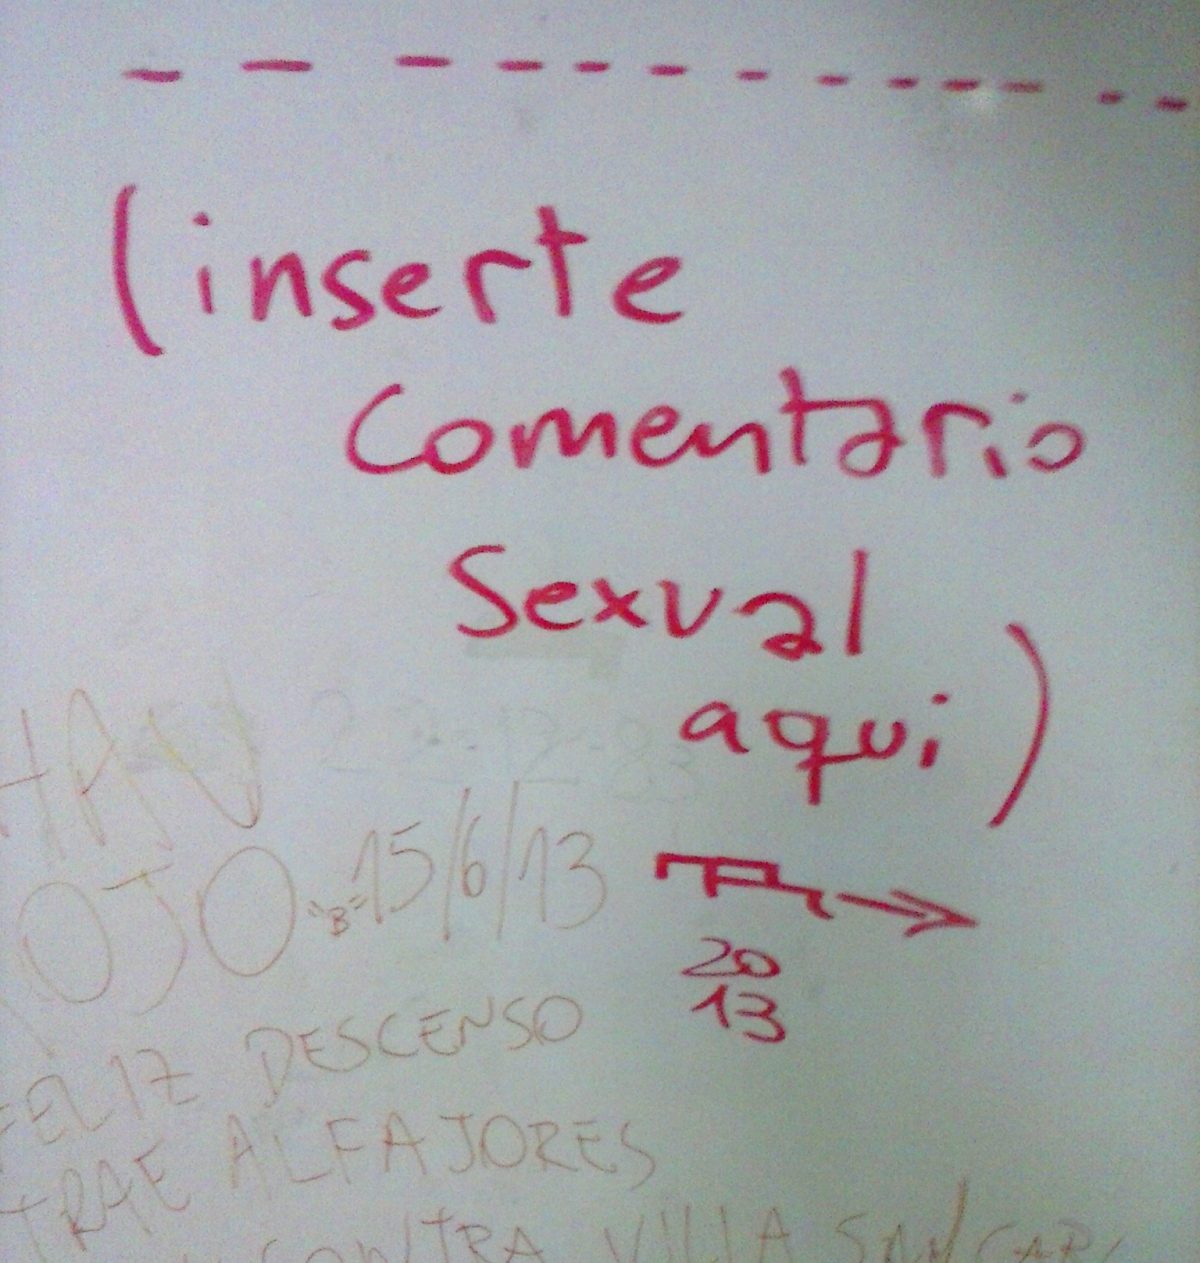 (inserte
comentario
sexual
aqui)
20
13
OJO "B" 15/6/13
FELIZ DESCENSO
TRAE ALFAJORES
CONTRA VILLA SAN CAR